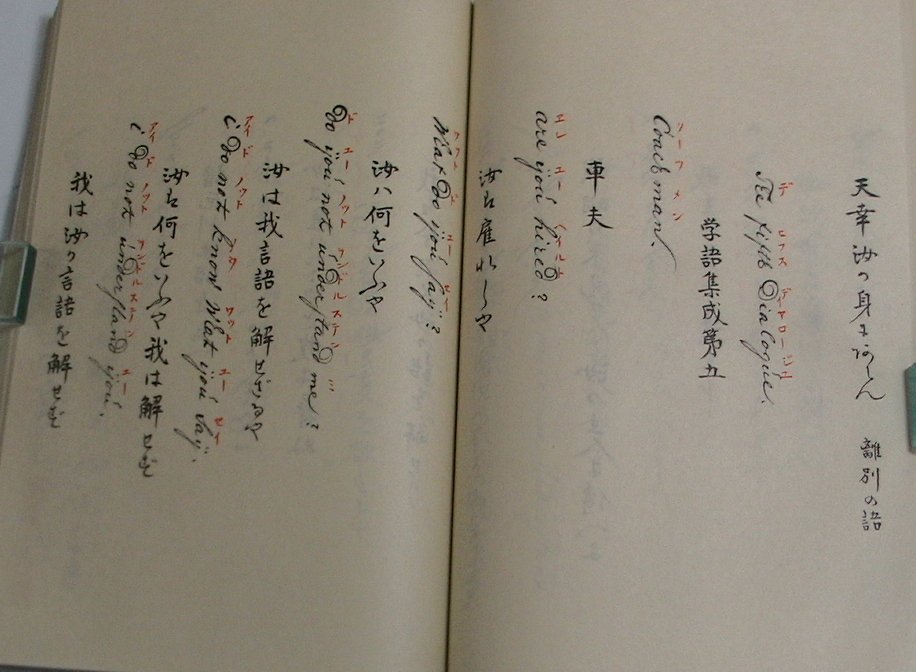 天幸汝の身にあらん 離別の語
デ ヒフス
fifth Dialogue.
学語集成第五
メン
Coachman.
車夫
エン ユー
are you hired?
汝は雇れしや
ド ユー セイ
What Do you say?
汝ハ何をいふや
ド ユー ノット アンドルステン ミ
Do you not understand me?
汝は我言語を解せざるや
アイ ド ノット ノウ ワット ユー セイ
i Do not know What you say.
汝は何をいふや我は解せず
アイ ド ノット アンドルステン ユー
i Do not understand you.
我は汝の言語を解せず